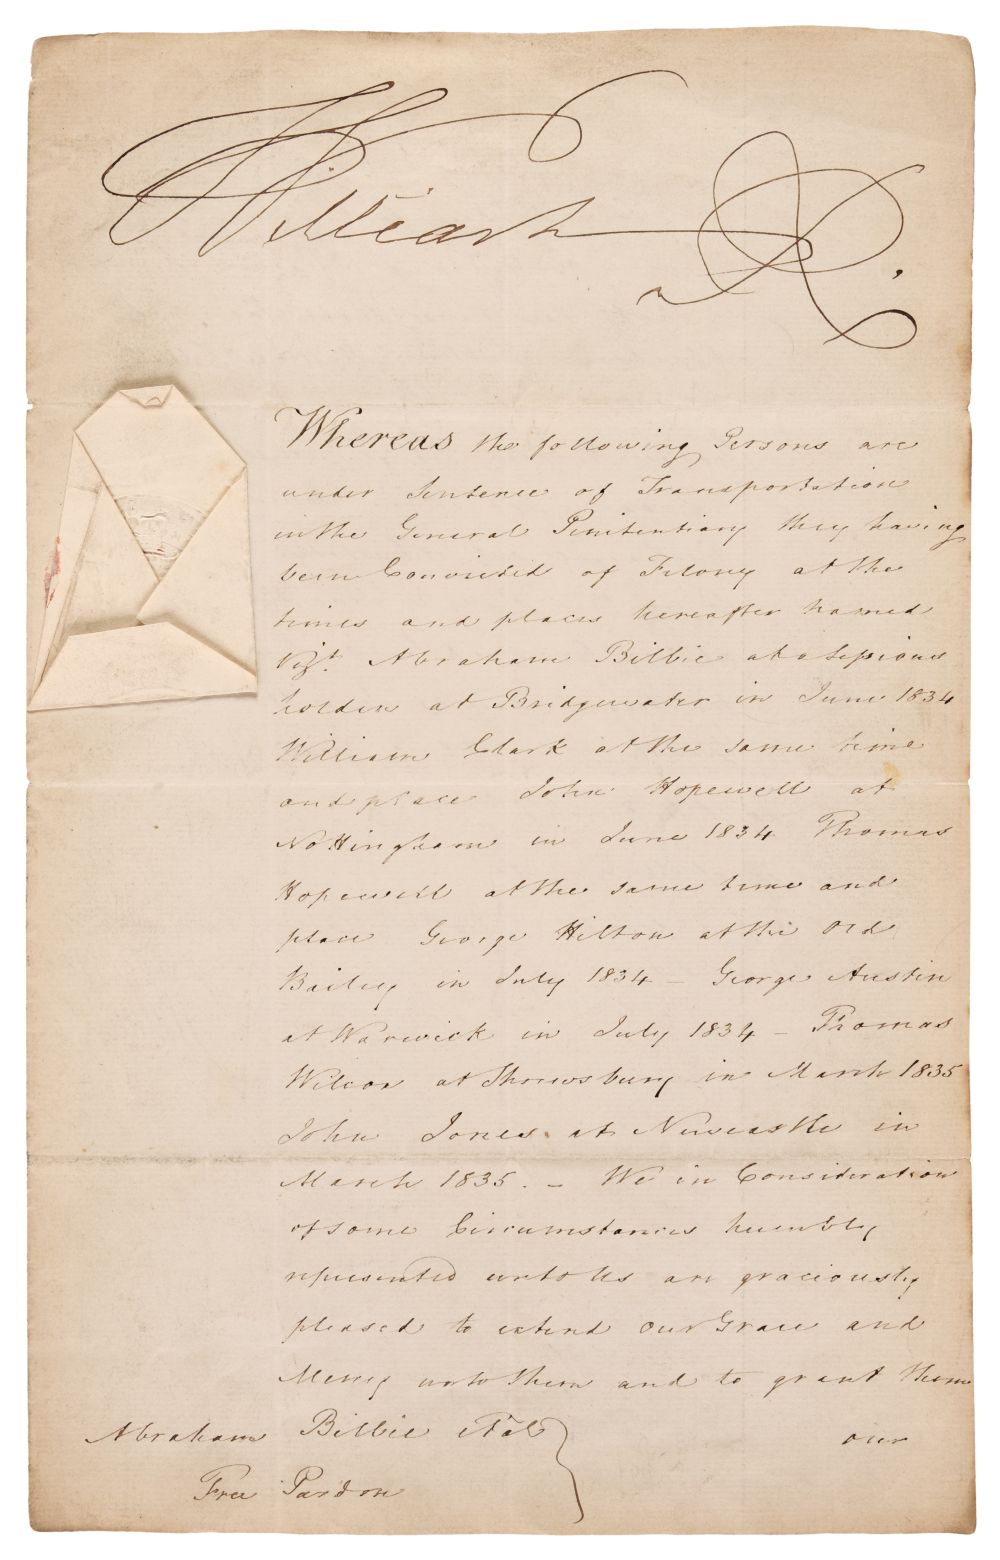 William R.
Whereas the following Persons are
under Sentence of Transportation
in the General Penitentiary they having
been Convicted of Felony at the
times and places hereafter named
Vizt. Abraham Billie at a Sessions
holden at Bridgewater in June 1834
William Clark at the same time
and place John Hopewell at
Nottingham in June 1834 Thomas
Hopewell at the same time and
place George Hilton at the Old
Bailey in July 1834 – George Austin
at Warwick in July 1834 – Thomas
Wilcox at Shrewsbury in March 1835
John Jones at Newcastle in
March 1835. – We in Consideration
of some Circumstances humbly
represented unto Us are graciously
pleased to extend our Grace and
Mercy unto them and to grant them
our
Abraham Billie &al
Free Pardon